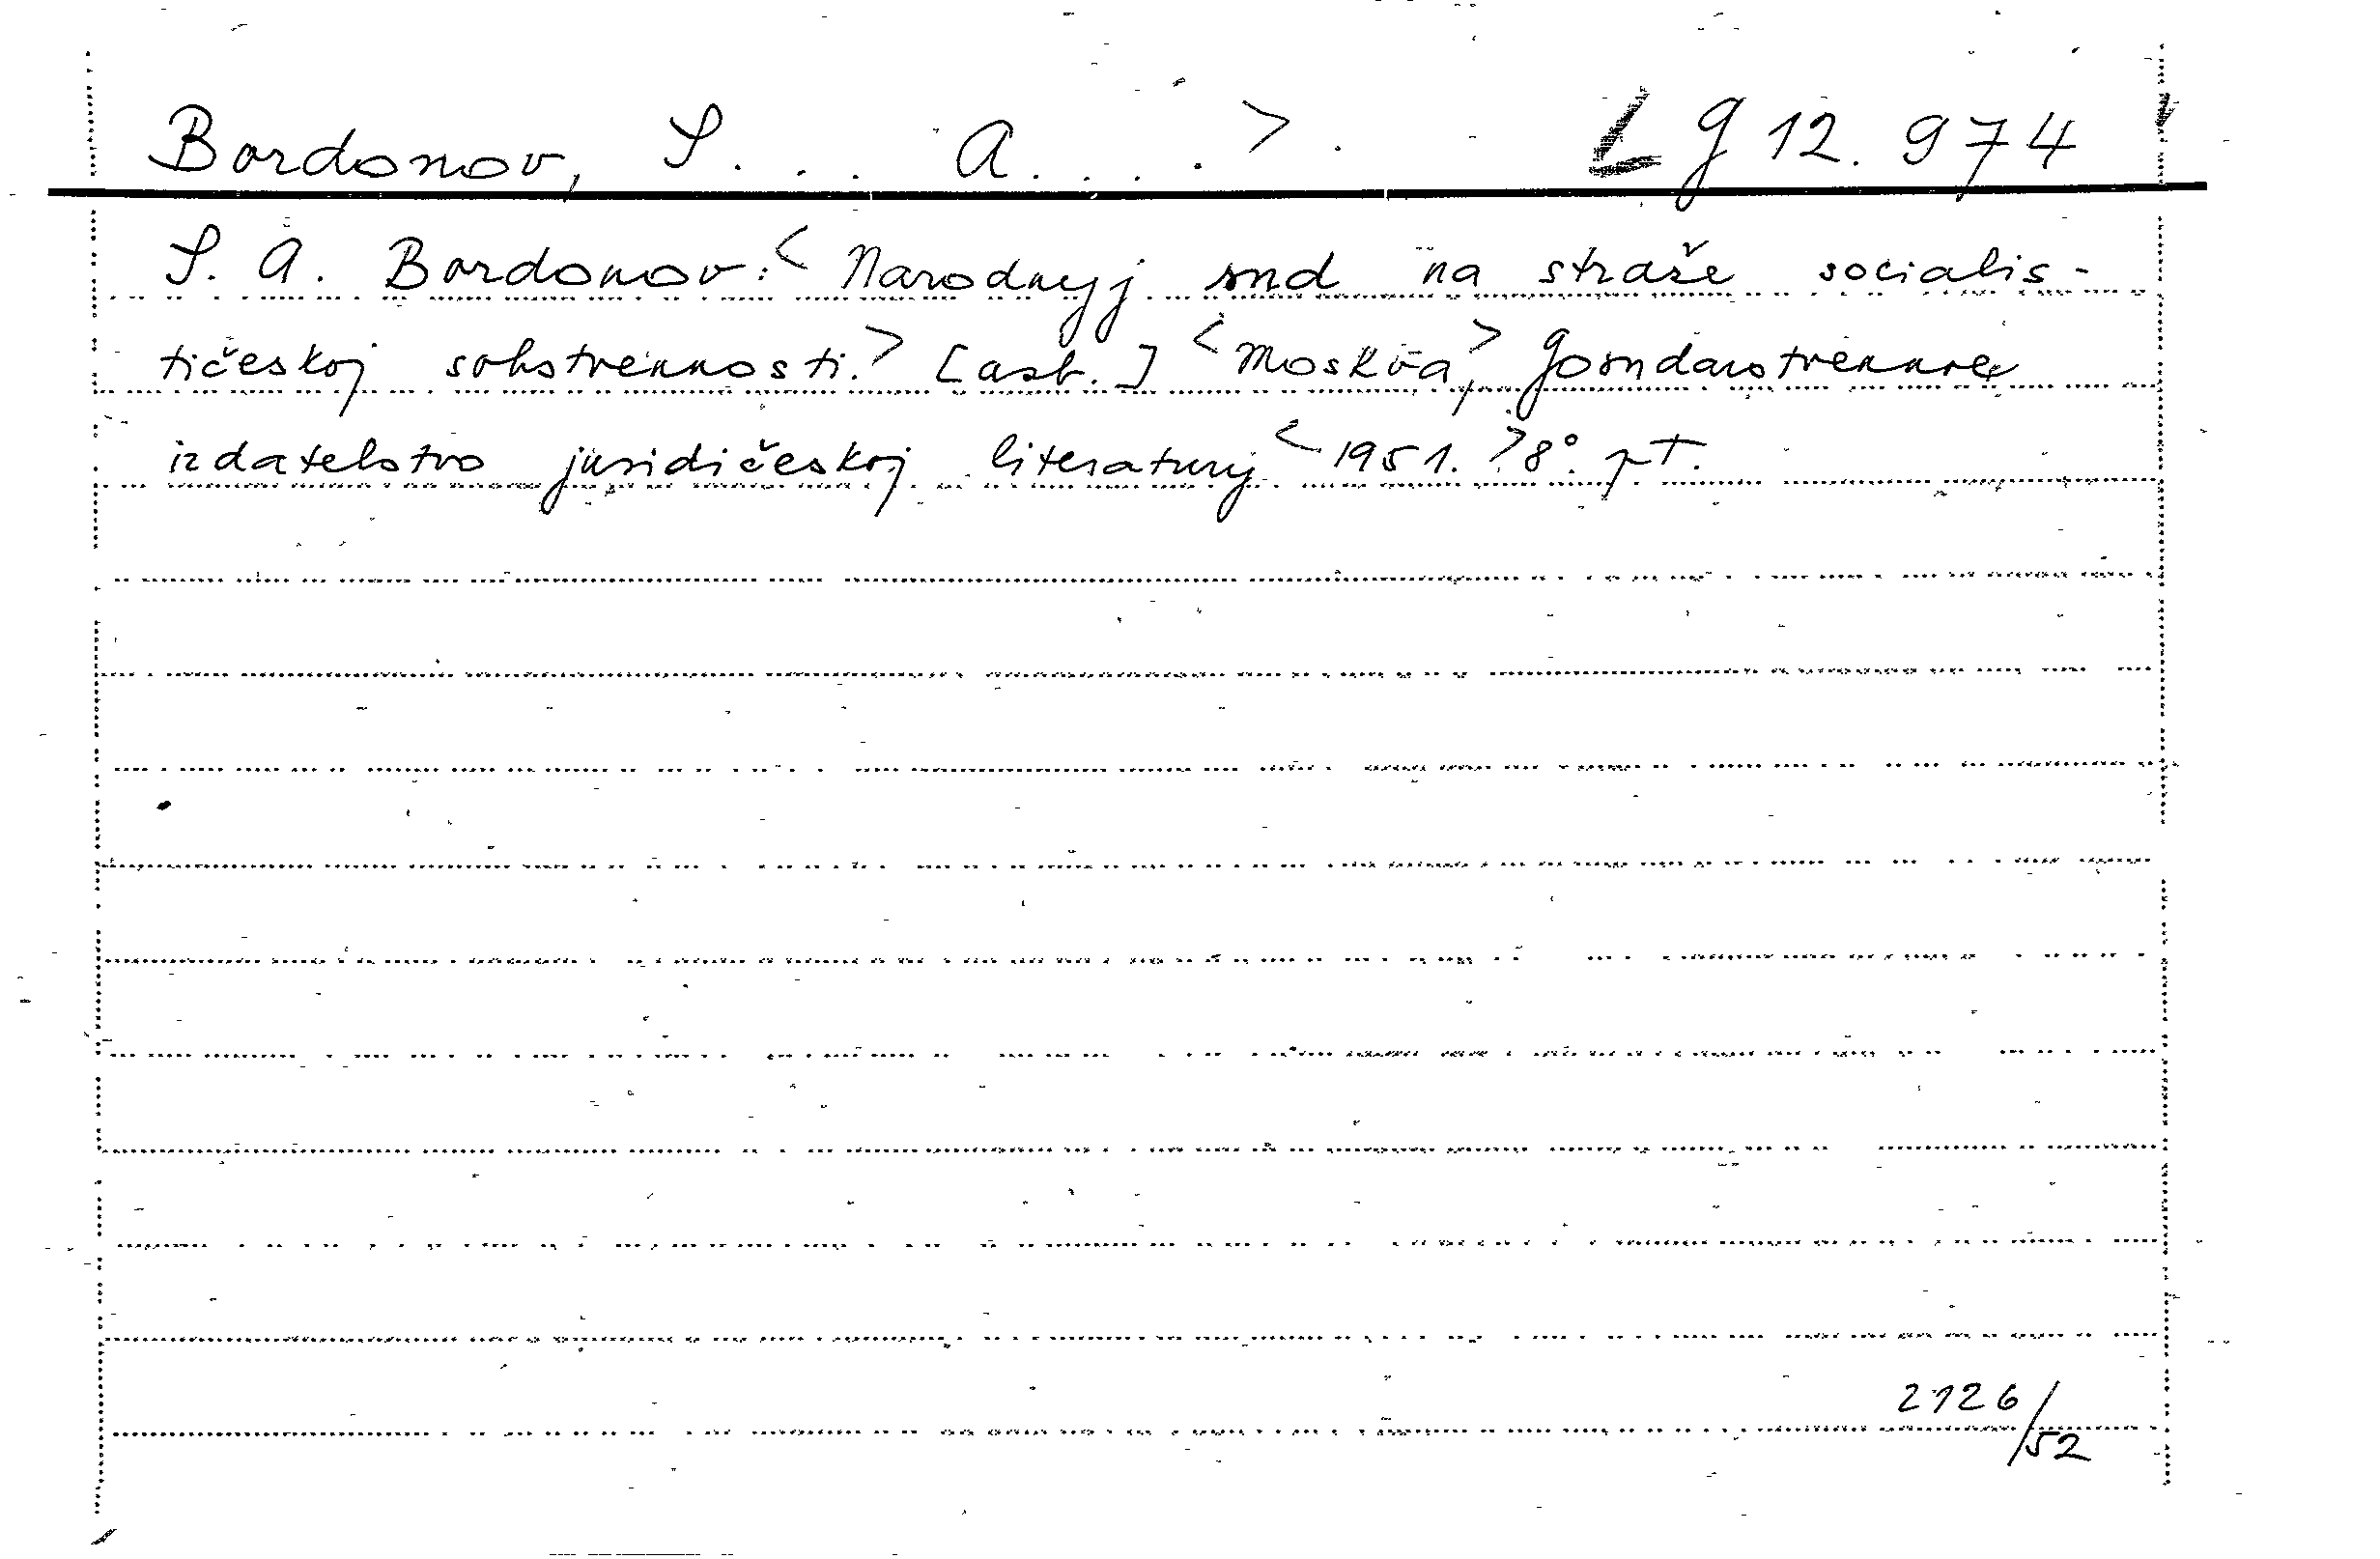 Bordonov, S... A....>. L g 12.974
S. A. Bordonov: < Narodnyj sud na straže socialis-
tičeskoj sobstvennosti. > [asb.] < Moskva, > Gosudarstvennoe
izdatelstvo juridičeskoj literatury < 1951. > 8°. pT.
2126/52